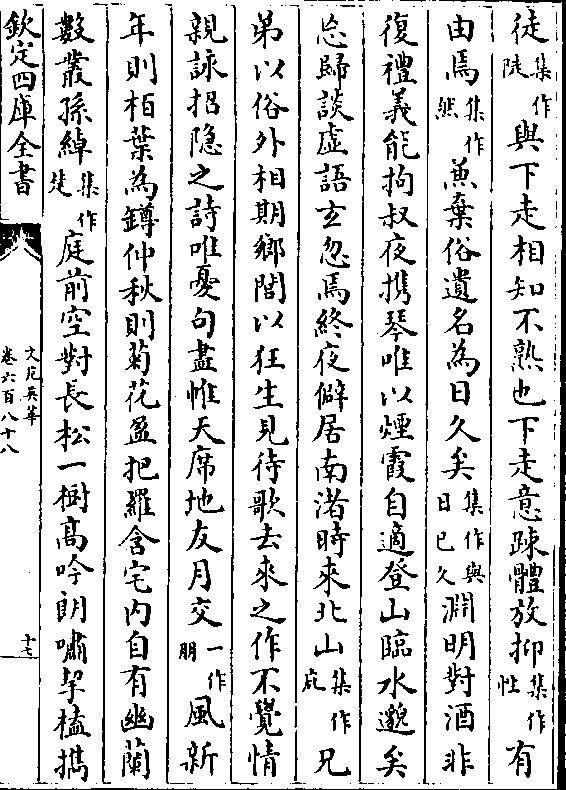 徒集作陡與下走相知不熟也下走意踈體放抑集作性有
由焉集作然兼棄俗遺名為日久矣集作與日已久淵明對酒非
復禮義能拘叔夜携琴唯以煙霞自適登山臨水邈矣
忘歸談虛語玄忽焉終夜僻居南渚時來北山集作兄
弟以俗外相期鄉閭以狂生見待歌去來之作不覺情
親詠招隐之詩唯憂句盡惟天席地友月交一作朋風新
年則栢葉為鐏仲秋則菊花盈把羅含宅内自有幽蘭
數叢孫綽集作楚庭前空對長松一樹髙吟朗嘯挈榼攜
欽定四庫全書
文苑英華
卷六百八十八
十七